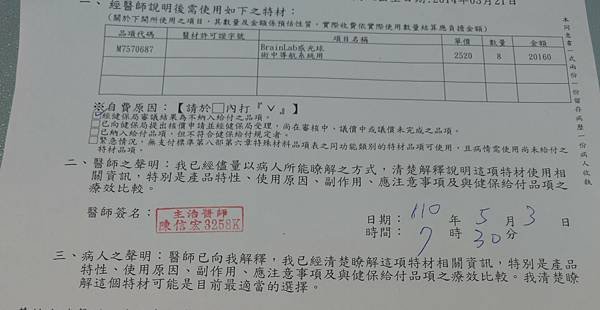 一、經醫師說明後需使用如下之特材：
(關於下開所使用之項目，其數量及金額係預估性質，實際收費依實際使用數量結算應負擔金額)
品項代碼 醫材許可證字號 項目名稱 單價 數量 金額
M7570687 BrainLab感光球 2520 8 20160
術中導航系統用
※自費原因：【請於□內打『∨』】
經健保局審議結果為不納入給付之品項。
□已向健保局提出核價申請並經健保局受理，尚在審核中、議價中或議價未完成之品項。
□已納入給付品項，但不符合健保給付規定者。
□緊急情況，無支付標準第八部第六章特殊材料品項表之同功能類別的特材品項可使用，且病情需使用尚未給付之
特材品項。
二、醫師之聲明：我已經儘量以病人所能瞭解之方式，清楚解釋說明這項特材使用相
關資訊，特別是產品特性、使用原因、副作用、應注意事項及與健保給付品項之
療效比較。
醫師簽名：
主治醫師
陳信宏3258K
日期：110 年 5 月 3 日
時間：7 時 30 分
三、病人之聲明：醫師已向我解釋，我已經清楚瞭解這項特材相關資訊，特別是產品
特性、使用原因、副作用、應注意事項及與健保給付品項之療效比較。我清楚瞭
解這個特材可能是目前最適當的選擇。
本同意書一式兩份一份留存病歷一份病人收執